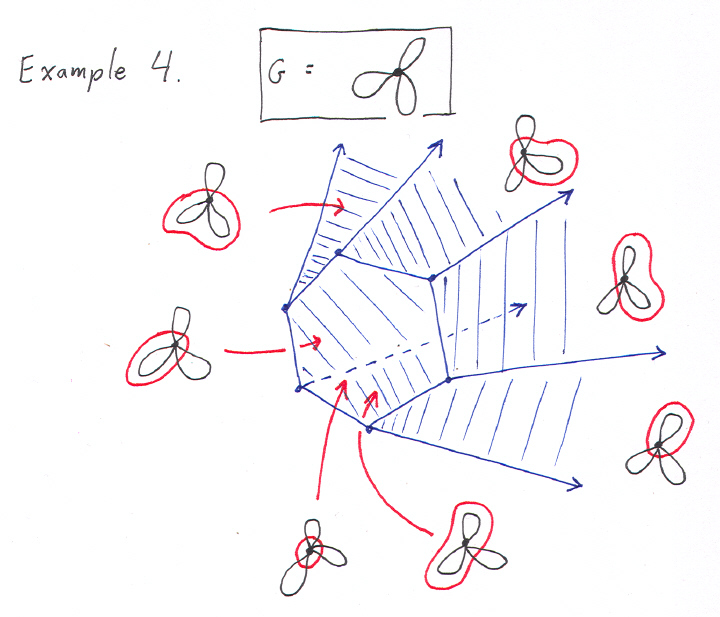 Example 4.
G =